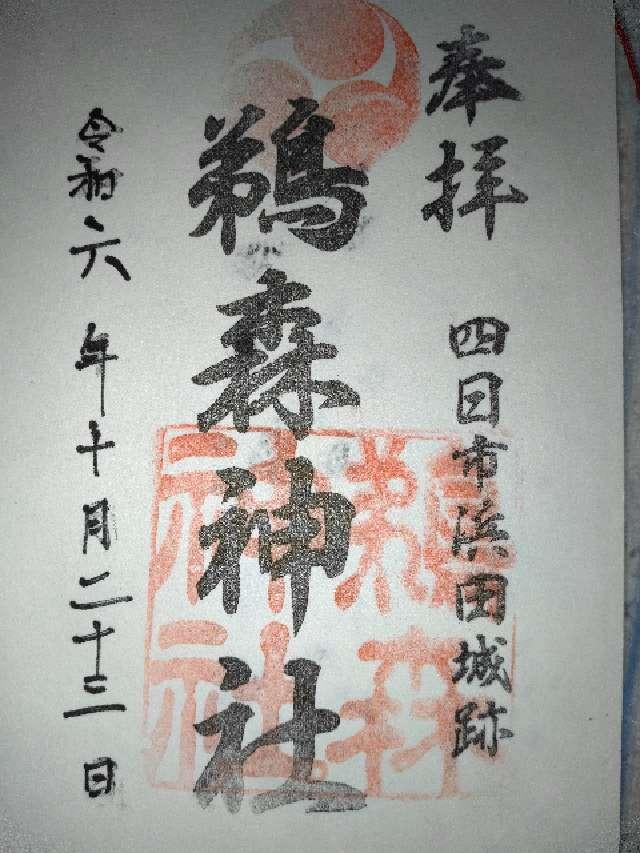 奉拝
四日市浜田城跡
鵜森神社
鵜森神社
令和六年十月二十三日